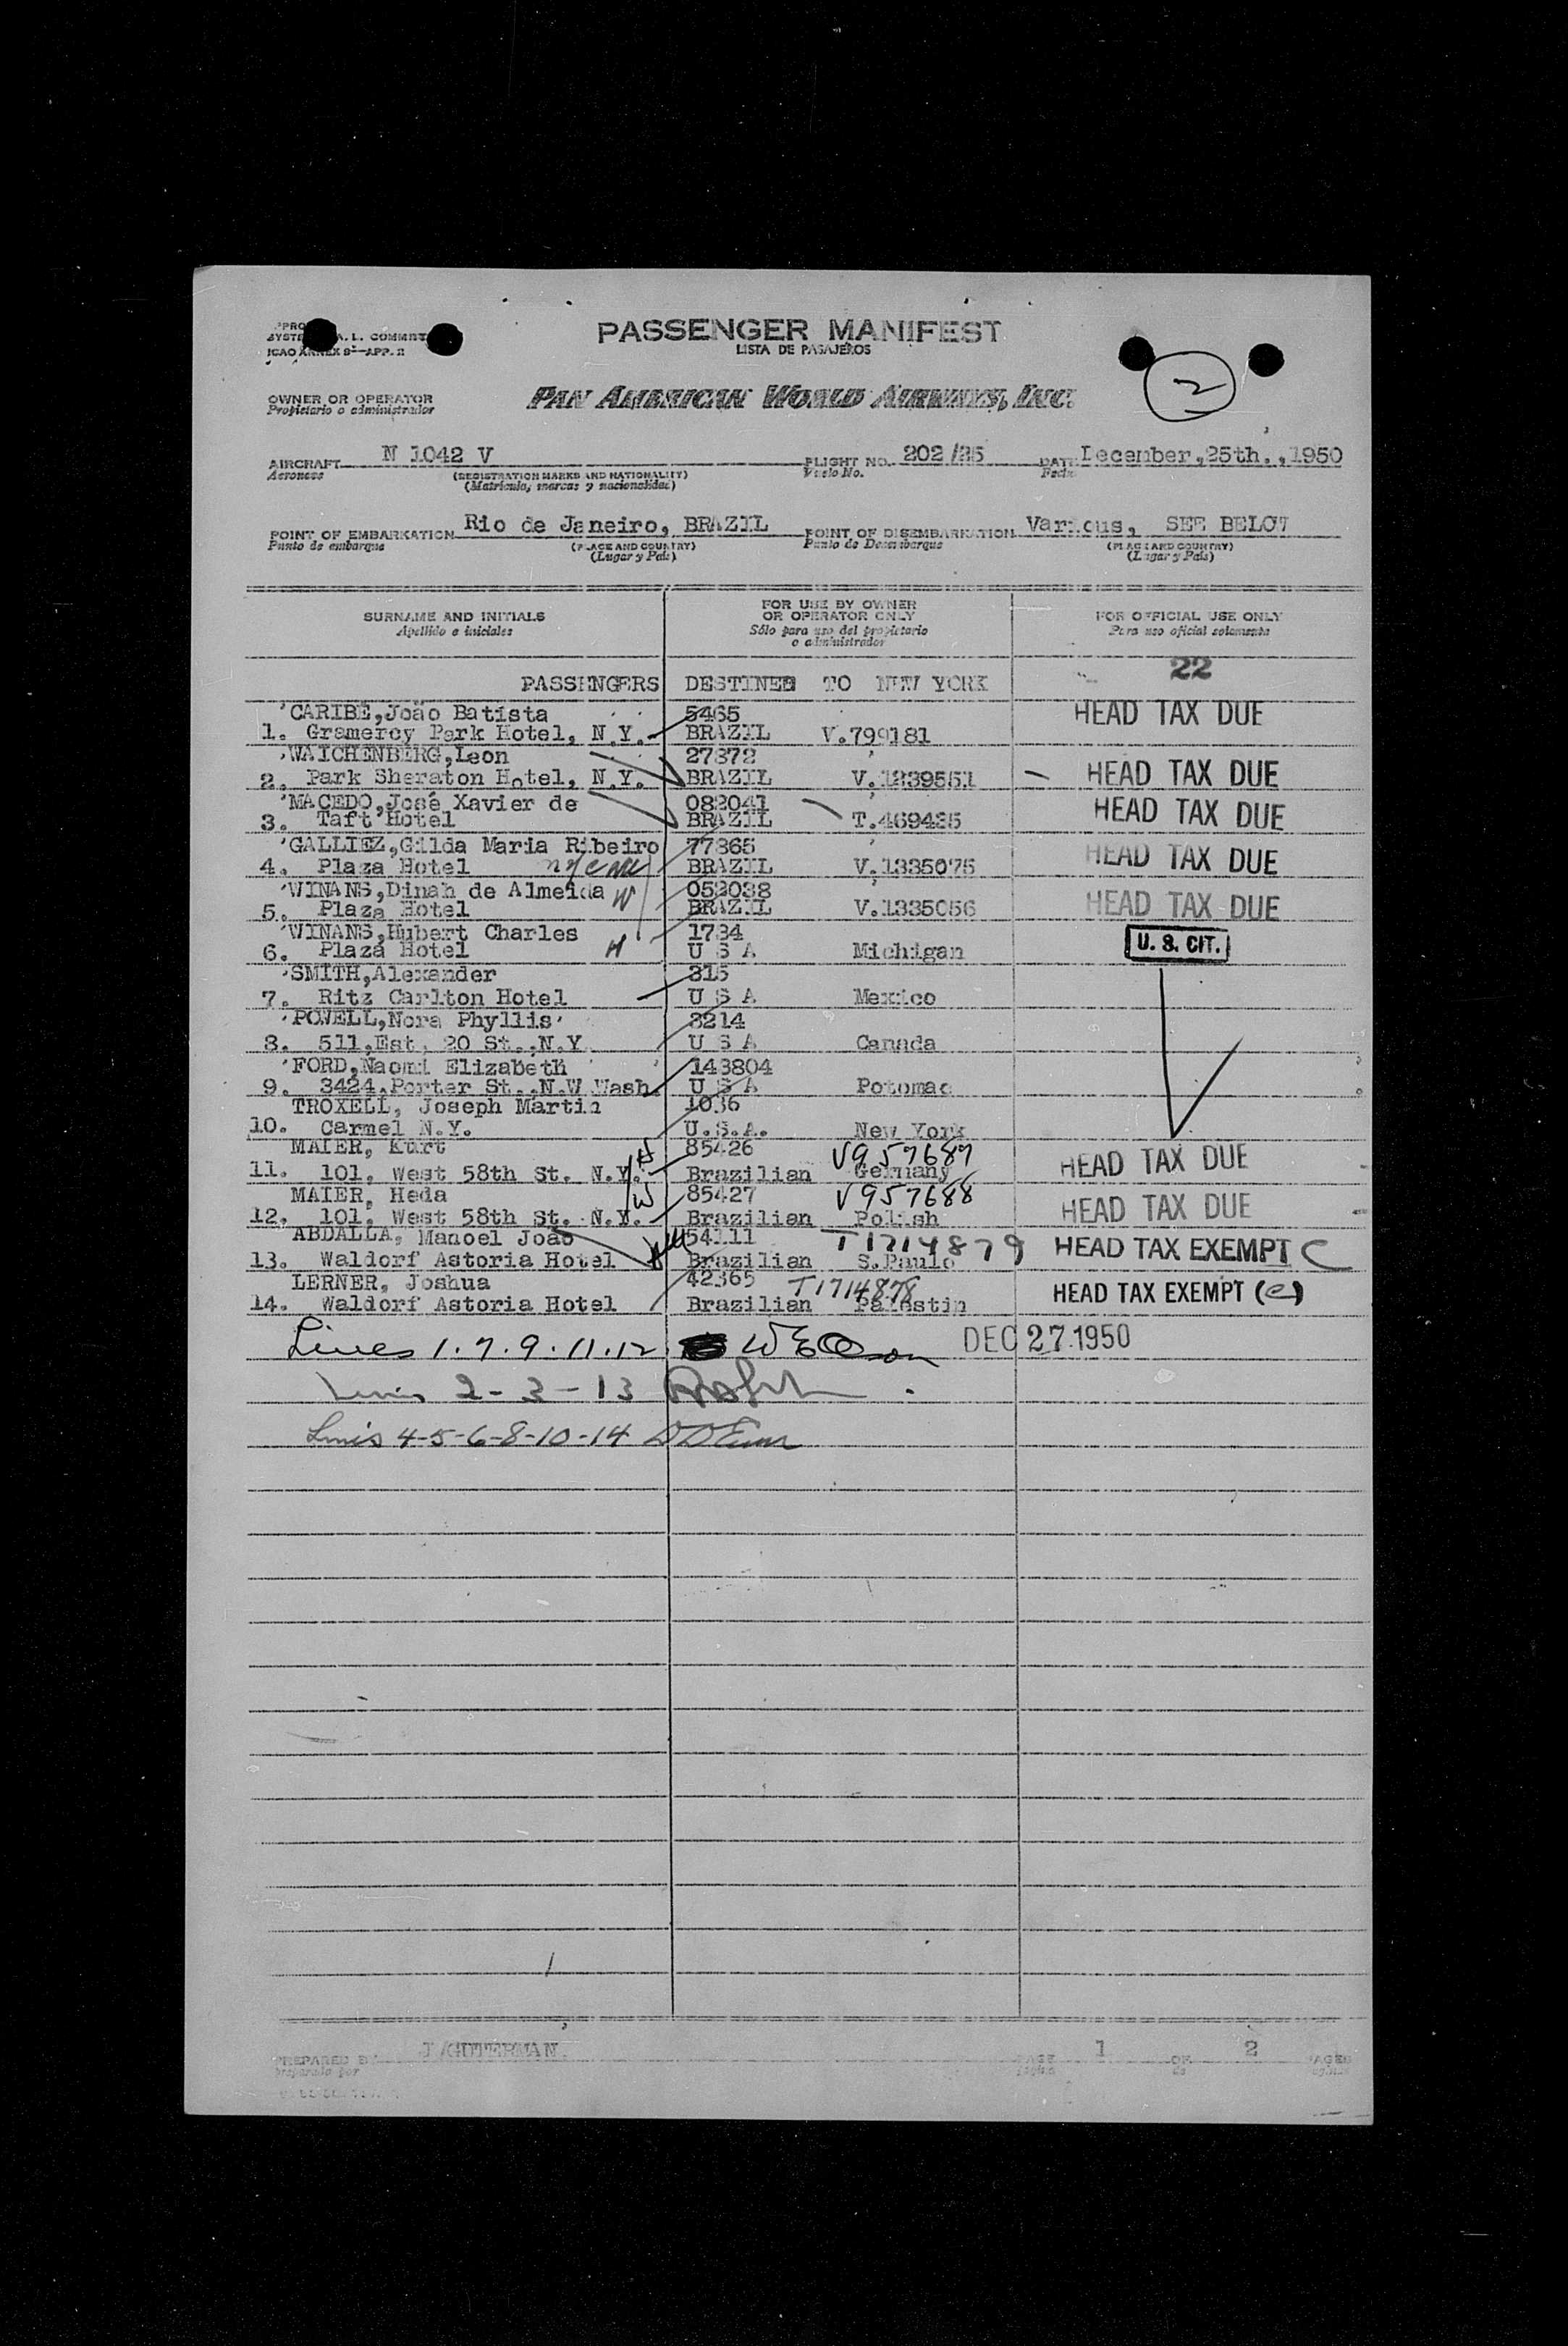 PASSENGER MANIFEST
LISTA DE PASAJEROS
A. L. COMMITT
ICAO ANNEX 9—APP. 2
2
OWNER OR OPERATOR PAN AMERICAN WORLD AIRWAYS, INC.
Propietario o administrador
AIRCRAFT N 1042 V FLIGHT NO. 202/25 DATE December,25th.,1950
Aeronave (REGISTRATION MARKS AND NATIONALITY) Vuelo No. Fecha
(Matrícula, marcas y nacionalidad)
POINT OF EMBARKATION Rio de Janeiro, BRAZIL POINT OF DISEMBARKATION Various, SEE BELOW
Punto de embarque (PLACE AND COUNTRY) Punto de Desembarque (PLACE AND COUNTRY)
(Lugar y País) (Lugar y País)
SURNAME AND INITIALS FOR USE BY OWNER OR OPERATOR ONLY FOR OFFICIAL USE ONLY
Apellido e iniciales Sólo para uso del propietario o administrador Para uso oficial solamente
22
PASSENGERS DESTINED TO NEW YORK
CARIBÉ,João Batista 5465 HEAD TAX DUE
1. Gramercy Park Hotel, N.Y. BRAZIL V.799181
WAICHENBERG,Leon 27872
2. Park Sheraton Hotel, N.Y. BRAZIL V.1339551 HEAD TAX DUE
MACEDO,José Xavier de 082041
3. Taft Hotel BRAZIL T.469435 HEAD TAX DUE
GALLIEZ,Gilda Maria Ribeiro 77865
4. Plaza Hotel BRAZIL V.1335075 HEAD TAX DUE
WINANS,Dinah de Almeida W 052038
5. Plaza Hotel BRAZIL V.1335056 HEAD TAX DUE
WINANS,Hubert Charles 1734
6. Plaza Hotel H U S A Michigan U. S. CIT.
SMITH,Alexander 315
7. Ritz Carlton Hotel U S A Mexico
POWELL,Nora Phyllis 3214
8. 511,Est. 20 St.,N.Y. U S A Canada
FORD,Naomi Elizabeth 143804
9. 3424,Porter St.,N.W.Wash. U S A Potomac
TROXELL, Joseph Martin 1036
10. Carmel N.Y. U.S.A. New York
MAIER, Kurt H 85426 V957689
11. 101, West 58th St. N.Y. Brazilian Germany HEAD TAX DUE
MAIER, Heda W 85427 V957688
12. 101, West 58th St. N.Y. Brazilian Polish HEAD TAX DUE
ABDALLA, Manoel João 54111 T1714879
13. Waldorf Astoria Hotel Brazilian S.Paulo HEAD TAX EXEMPT C
LERNER, Joshua 42365 T1714878
14. Waldorf Astoria Hotel Brazilian Palestin HEAD TAX EXEMPT (c)
Lines 1.7.9.11.12. DEC 27 1950
Lines 2-3-13
Lines 4-5-6-8-10-14
PREPARED BY J/GUTERMAN. PAGE 1 OF 2 PAGES
Preparado por Página de Páginas